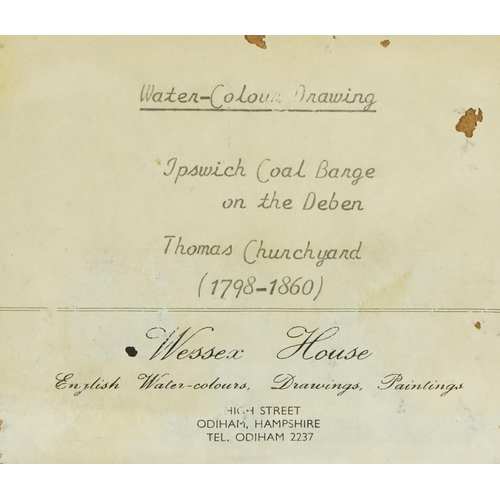 Water-Colour Drawing
Ipswich Coal Barge
on the Deben
Thomas Churchyard
(1798-1860)
Wessex House
English Water-colours, Drawings, Paintings
HIGH STREET
ODIHAM, HAMPSHIRE
TEL. ODIHAM 2237